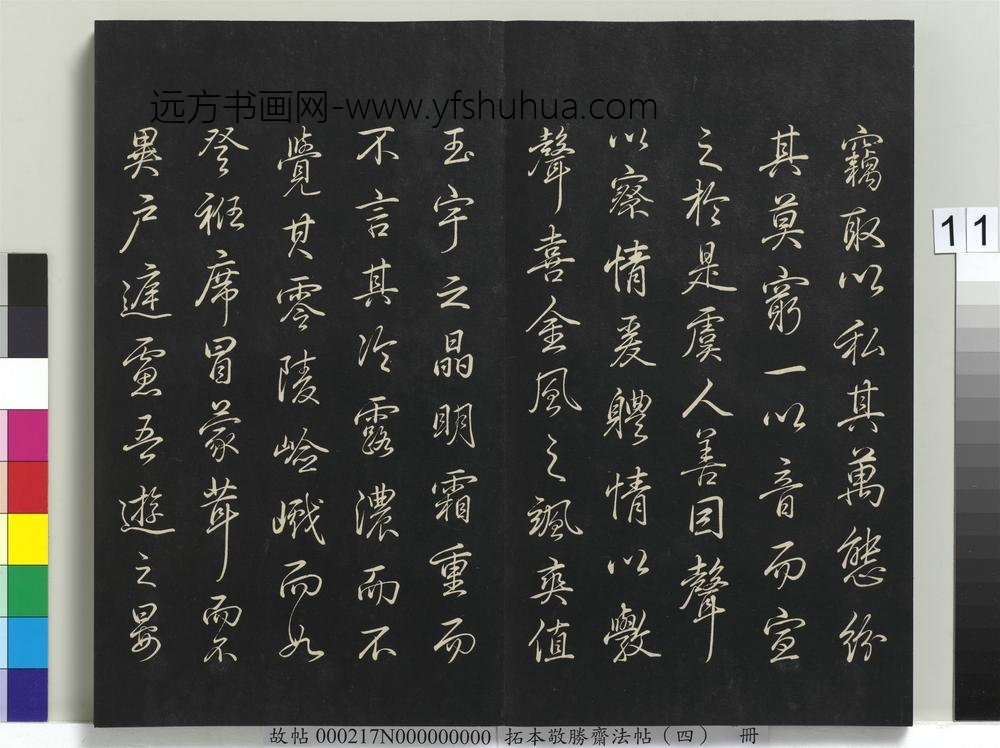 远方书画网-www.yfshuhua.com
竊取以私其萬態紛
其莫窮一以音而宣
之於是虞人善因聲
以察情爰體情以斆
聲喜金風之颯爽值
玉宇之晶明霜重而
不言其冷露濃而不
覺其零陵崄峨而如
登袵席冒蒙茸而不
異戶遲慮吾遊之晏
11
故帖 000217N000000000 拓本敬勝齋法帖（四） 冊